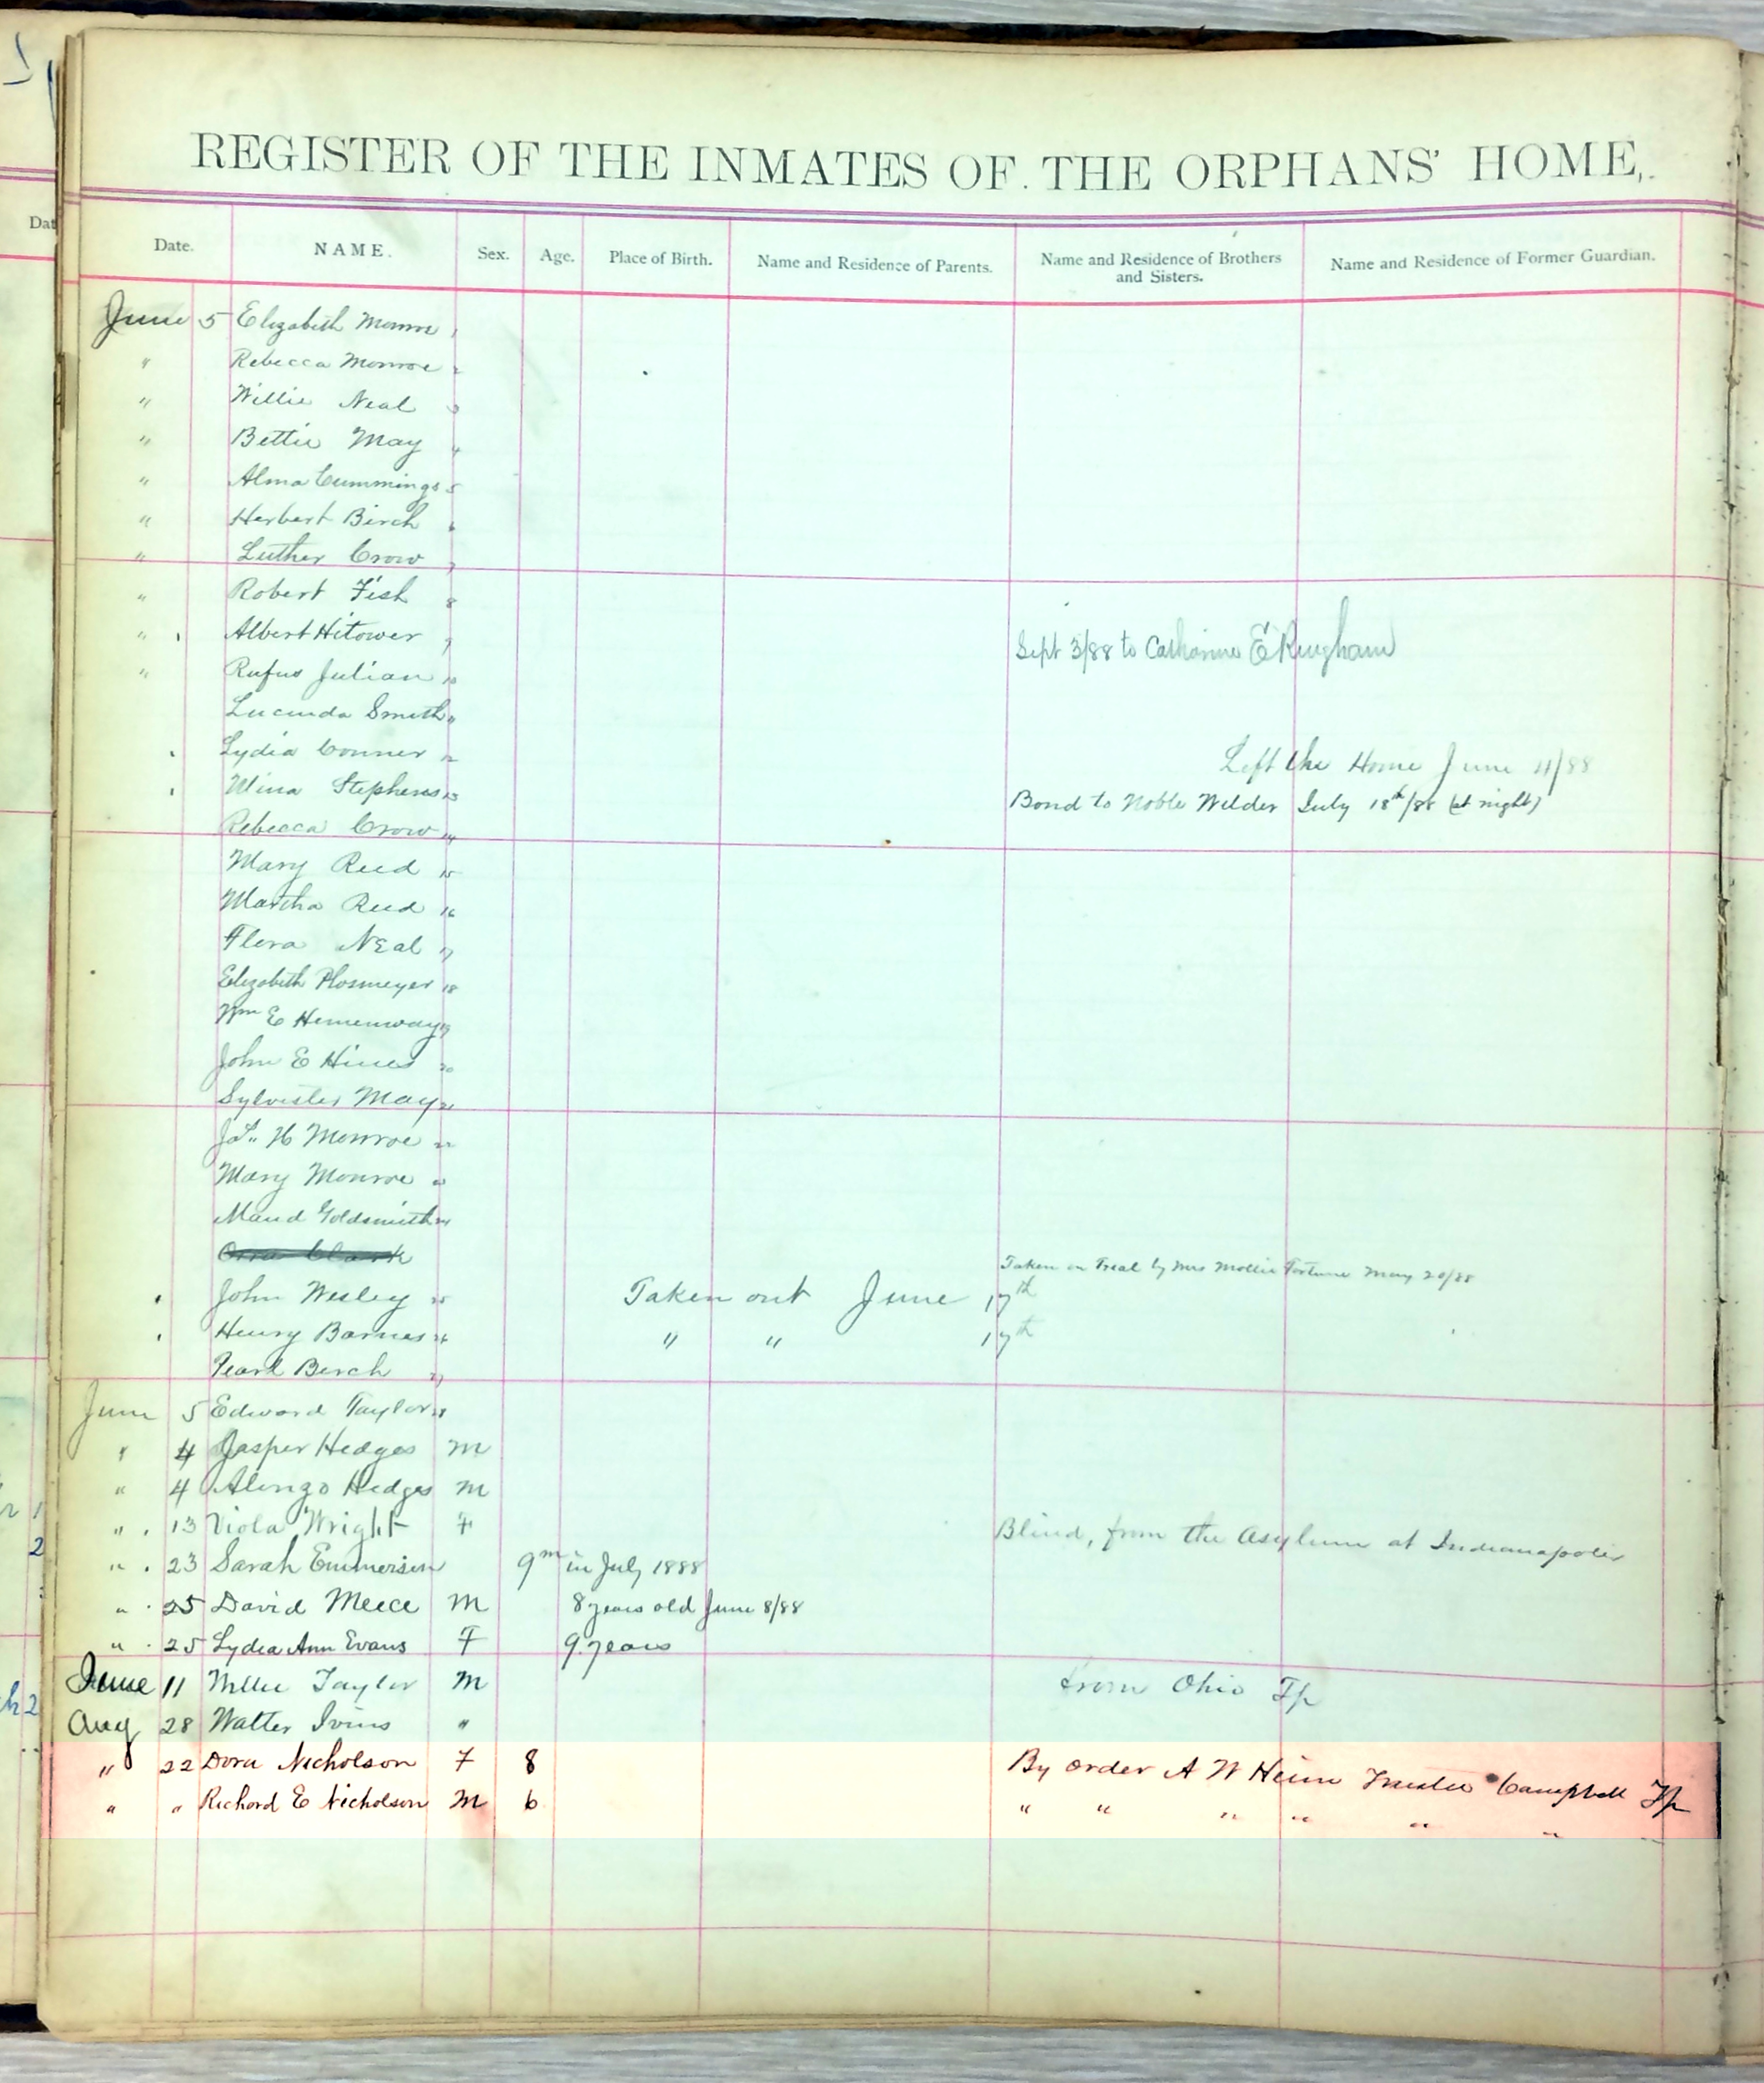 REGISTER OF THE INMATES OF THE ORPHANS' HOME,
Dat
Date. NAME. Sex. Age. Place of Birth. Name and Residence of Parents. Name and Residence of Brothers and Sisters. Name and Residence of Former Guardian.
June 5 Elizabeth Monroe 1
" Rebecca Monroe 2
" Willie Neal 3
" Bettie May 4
" Alma Cummings 5
" Herbert Birch 6
" Luther Crow 7
" Robert Fish 8
" Albert Hitower 9 Sept 3/88 to Catharine E Ringham
" Rufus Julian 10
Lucinda Smith 11
Lydia Conner 12 Left the Home June 11/88
Mina Stephens 13 Bond to Noble Wilder July 18th/88 (at night)
Rebecca Crow 14
Mary Reed 15
Martha Reed 16
Flora Neal 17
Elizabeth Plosmeyer 18
Wm E Hemenway 19
John E Hines 20
Sylvester May 21
Jas. H Monroe 22
Mary Monroe 23
Maud Goldsmith 24
Orra Clark
Taken on Trial by Mrs Mollie Fortune May 20/88
John Wesley 25 Taken out June 17th
Henry Barnes 26 " " 17th
Pearl Berch 27
June 5 Edward Taylor 28
" 4 Jasper Hedges M
" 4 Alonzo Hedges M
" 13 Viola Wright F Blind, from the Asylum at Indianapolis
" 23 Sarah Emmerson 9m in July 1888
" 25 David Meece M 8 years old June 8/88
" 25 Lydia Ann Evans F 9 years
June 11 Willie Taylor M from Ohio Tp
Aug 28 Walter Ivins "
" 22 Dora Nicholson F 8 By order A W Heim Trustee Campbell Tp
" " Richard E Nicholson M 6 " " " " " " "